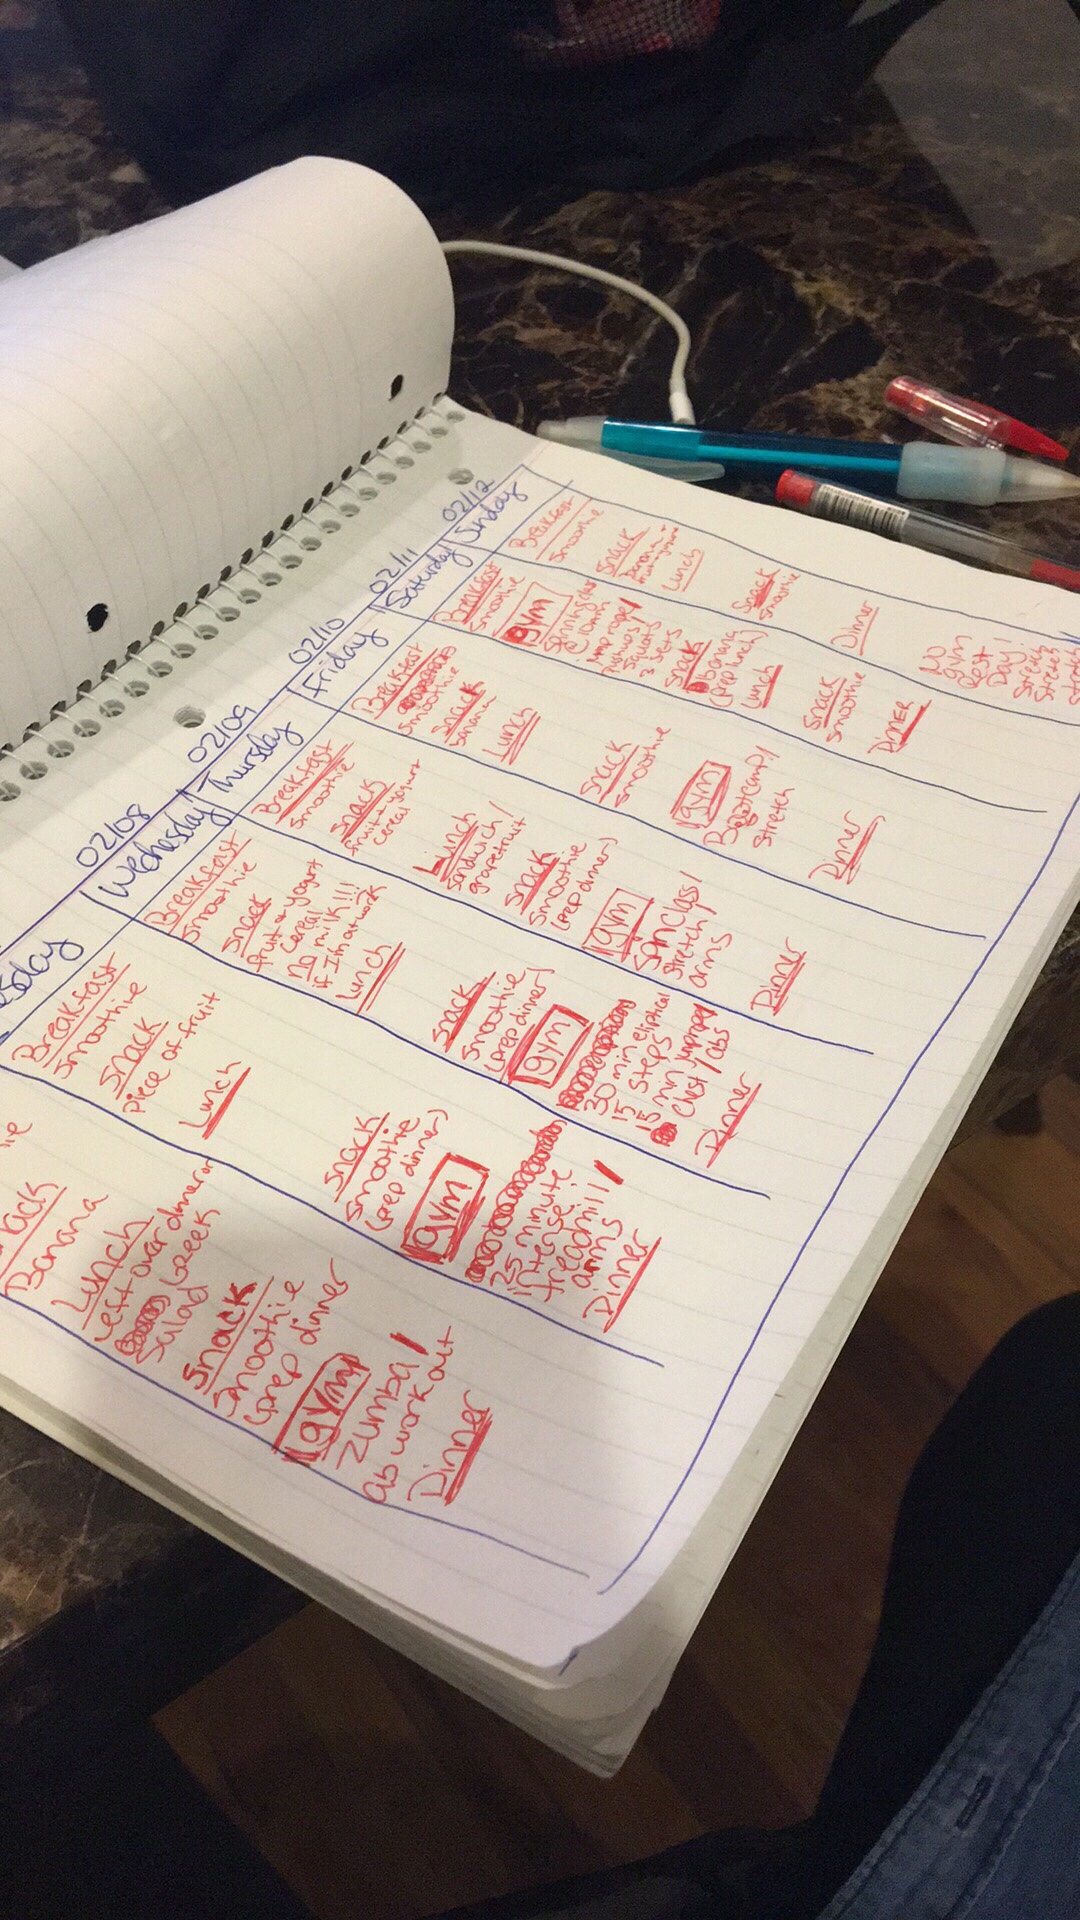 02/12
Sunday
Breakfast
Smoothie
Snack
Lunch
Snack
smoothie
Dinner
No
gym
Rest
Day!
Stretch
Stretch
02/11
Saturday
Breakfast
smoothie
gym
@ 10am
jump rope/
pushups/
squats
3 sets
Snack
banana
(prep lunch)
Lunch
Snack
smoothie
Dinner
02/10
Friday
Breakfast
smoothie
snack
banana
Lunch
Snack
smoothie
gym
Bootcamp/
stretch
Dinner
02/09
Thursday
Breakfast
smoothie
snack
fruit + yogurt
cereal
Lunch
sandwich/
grapefruit
Snack
smoothie
(prep dinner)
gym
Spin Class/
stretch/
arms
Dinner
02/08
Wednesday
Breakfast
smoothie
snack
fruit + yogurt
cereal
No milk!!!
if I'm at work
Lunch
snack
smoothie
(prep dinner)
gym
30 min eliptical
15 steps
15 min jumprope/
chest/abs
Dinner
esday
Breakfast
smoothie
snack
piece of fruit
Lunch
snack
smoothie
(prep dinner)
gym
25 minute
intense
treadmill/
arms
Dinner
ie
nack
Banana
Lunch
Left over dinner or
salad
Snack
smoothie
(prep dinner
gym
Zumba/
ab work out
Dinner